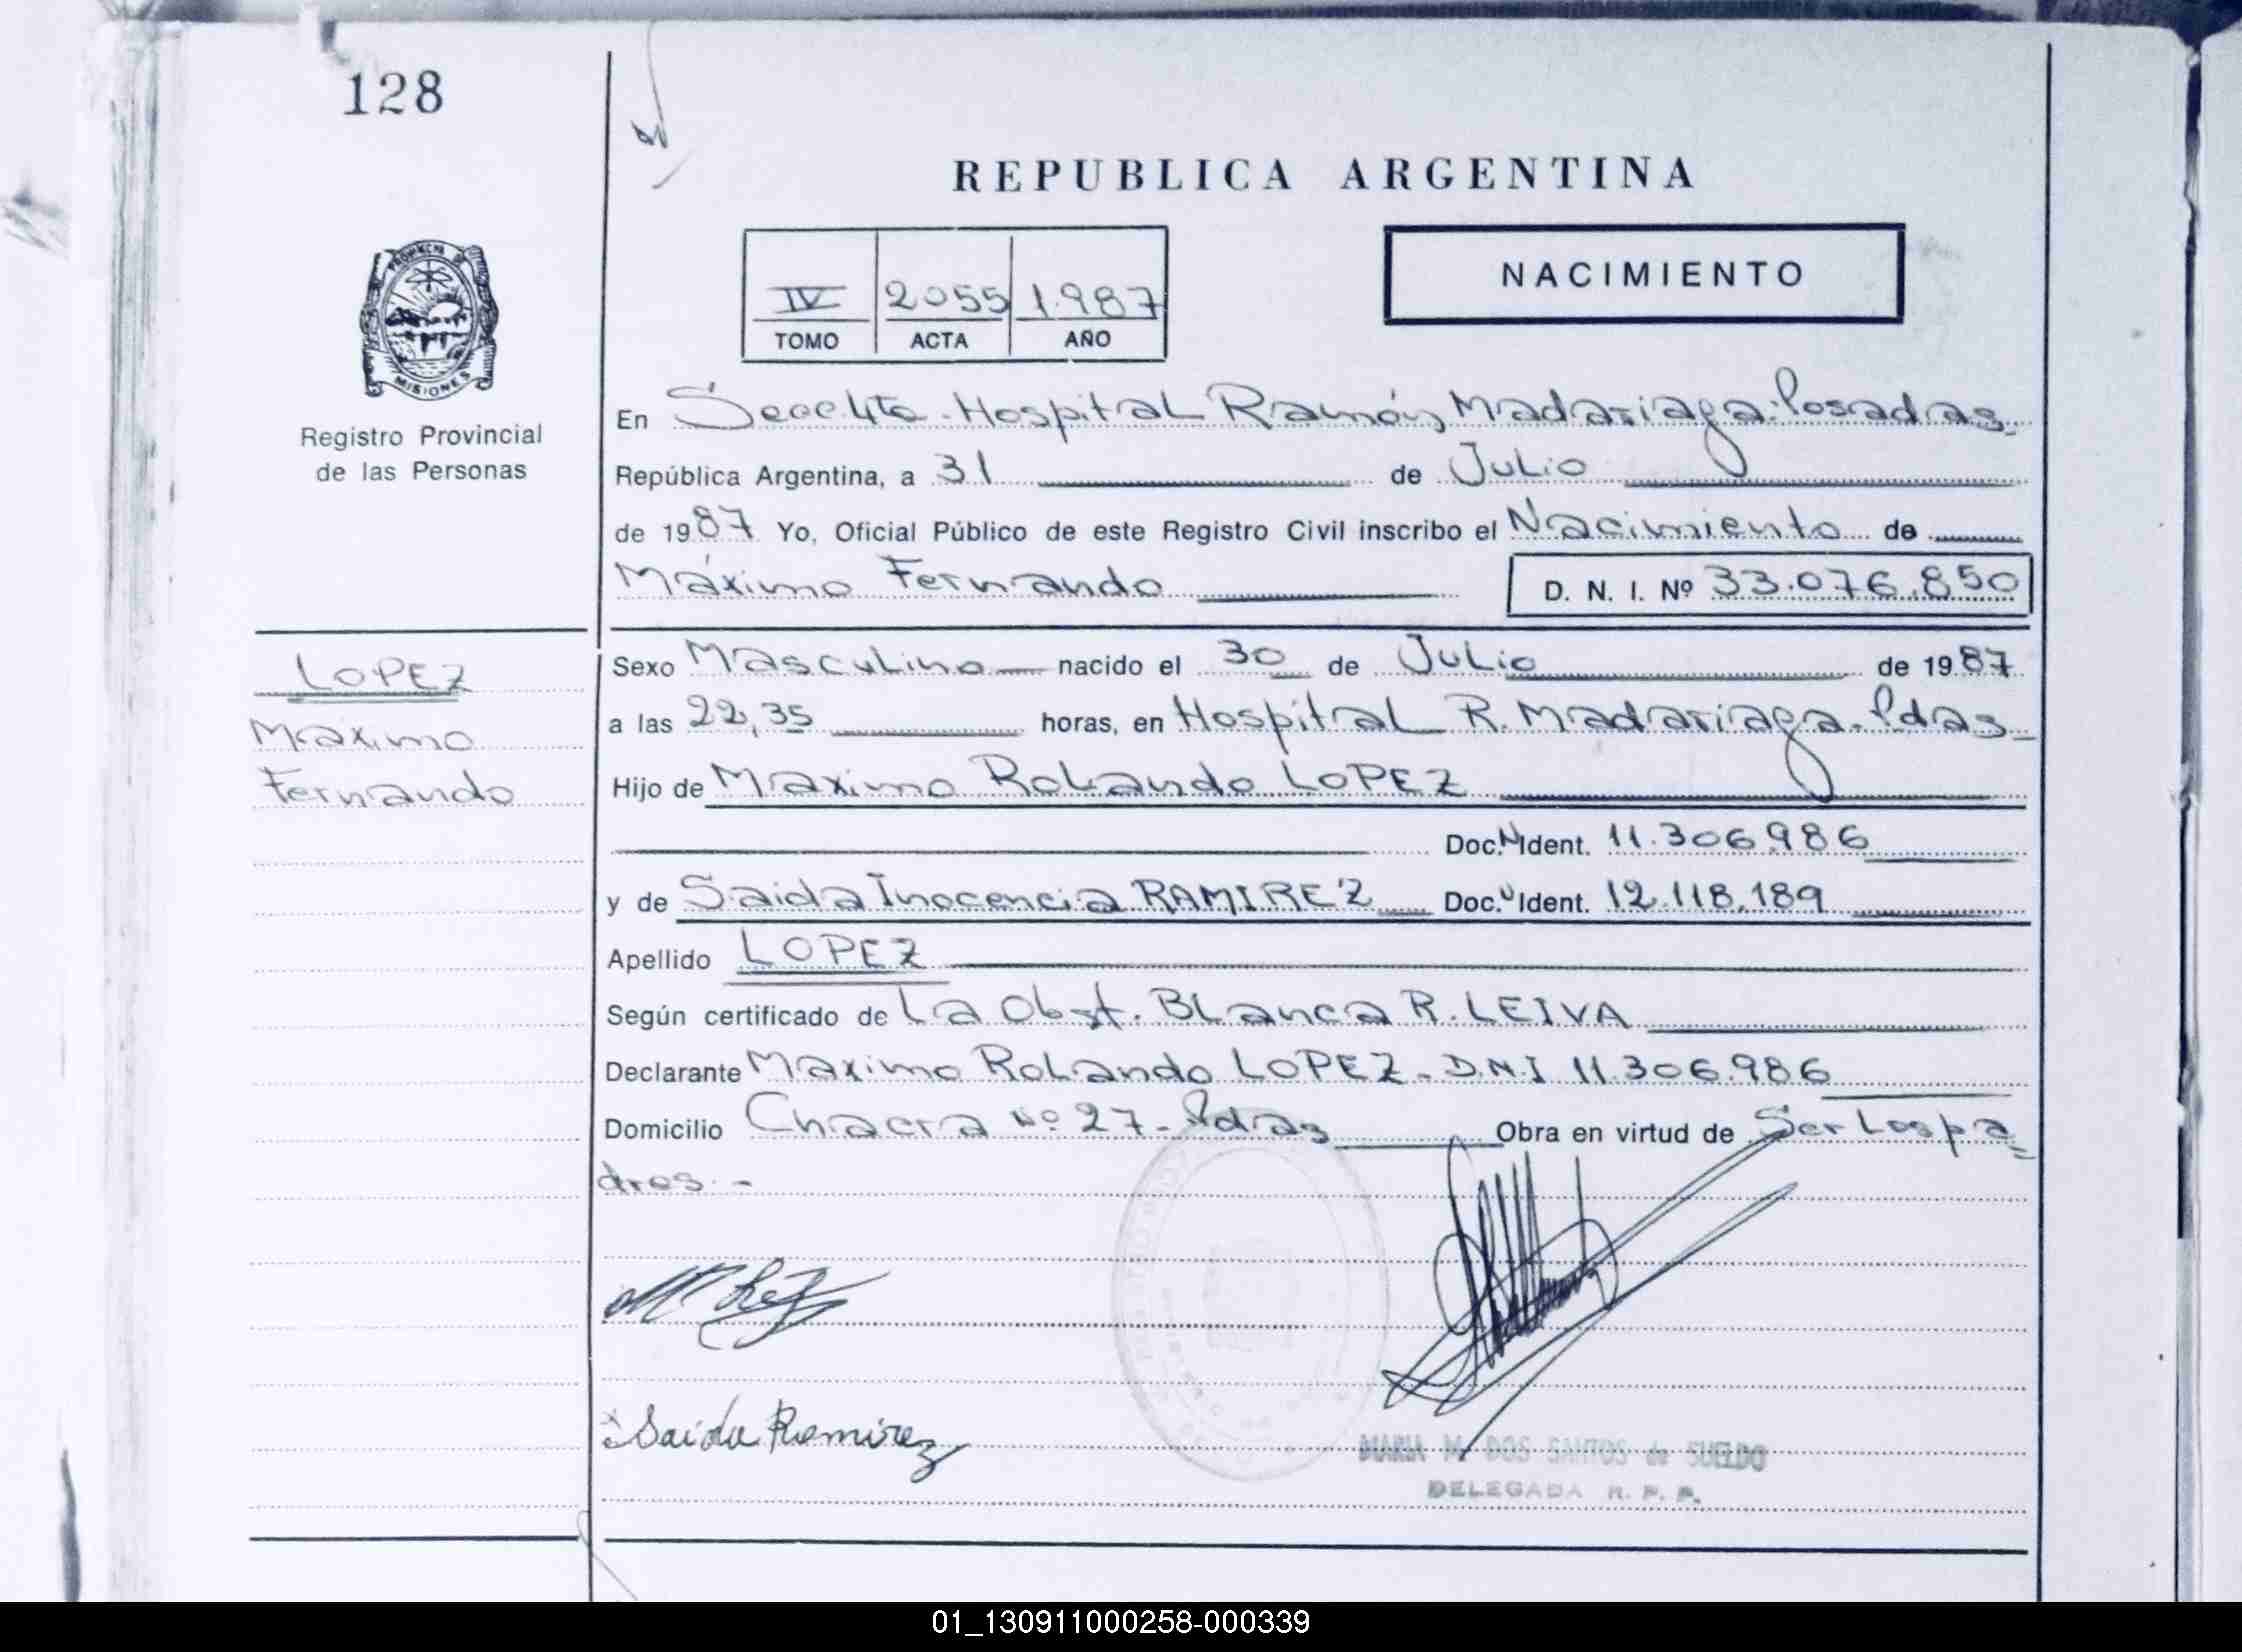 128
REPUBLICA ARGENTINA
IV 2055 1.987
TOMO ACTA AÑO
NACIMIENTO
PROVINCIA DE
MISIONES
Registro Provincial
de las Personas
En Secc. 4ta. Hospital Ramón Madariaga. Posadas
República Argentina, a 31 de Julio
de 1987 Yo, Oficial Público de este Registro Civil inscribo el Nacimiento de
Máximo Fernando D. N. I. Nº 33.076.850
LOPEZ
Máximo
Fernando
Sexo Masculino nacido el 30 de Julio de 1987
a las 22,35 horas, en Hospital R. Madariaga. Pdas
Hijo de Maximo Rolando LOPEZ
Doc. N Ident. 11.306.986
y de Saida Inocencia RAMIREZ Doc. Ident. 12.118.189
Apellido LOPEZ
Según certificado de La Obst. Blanca R. LEIVA
Declarante Maximo Rolando LOPEZ - D.N.I 11.306.986
Domicilio Chacra Nº 27 - Pdas Obra en virtud de Ser Los pa=
dres. -
Saida Ramirez
MARIA M. DOS SANTOS de SUELDO
DELEGADA R. P. P.
01_130911000258-000339